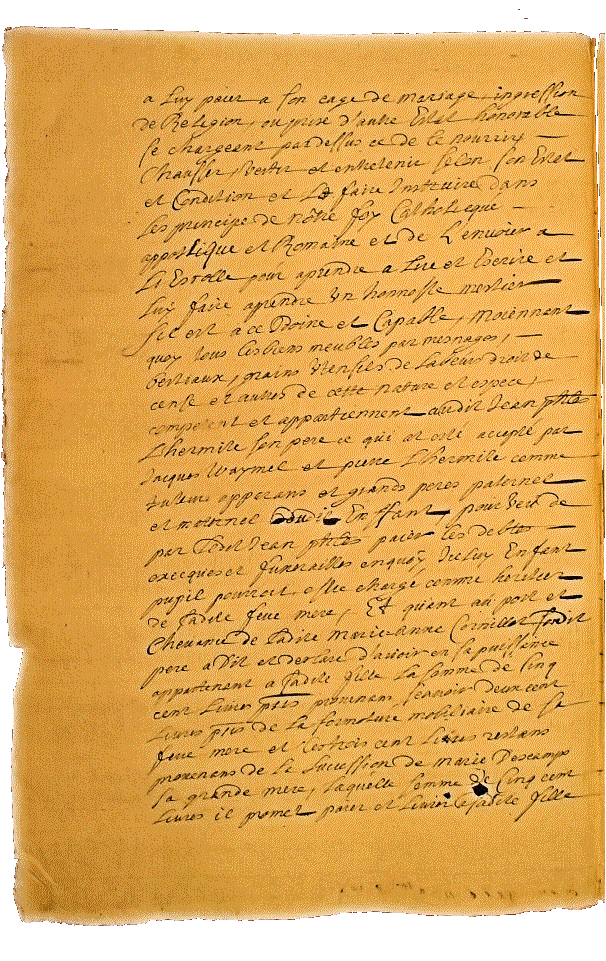 a Luy paier a son eage de mariage ingression
de Religion, ou prise d'autre Estat honorable
se chargeant par dessus ce de le nourrir
Chausser, Vestir et entretenir selon son Estat
et Condition et Le faire Instruire dans
Les principe de nôtre foy Catholicque
appostlique et Romaine et de L'envoier a
L'Escolle pour aprendre a Lire et Escrire et
Luy faire aprendre Un honneste mestier
Sil est a ce Idoine et Capable, moiennant
quoy tous les biens meubles par mesnages,
bestiaux, grains Utensiles de Labeur droit de
cense et autres de cette nature et espece,
competent et appartiennent audit Jean
Lhermite son pere ce qui at esté accepté par
Jacques Waymel et pierre Lhermite comme
tuteurs et grands peres paternel
et maternel dudit Enffant, pourveu de
par Ledit Jean paier les debtes
execques et funerailles enquoy Icelluy Enfant
pupil pourroit estre chargé comme heritier
de Ladite feue mere, Et quant au port et
Chevance de Ladite Marie Anne Cornillot sondit
pere a Dit et declaré d'avoir en sa puissance
appartenant a sadite fille La somme de Cinq
cent Livres provenans, scavoir deux cent
Livres de La formoture mobiliaire de sa
feue mere et les trois cent Livres restans
provenans de La Succession de Marie Descamps
sa grande mere, Laquelle somme de Cinq cent
Livres il promet paier et Livrer a sadite fille